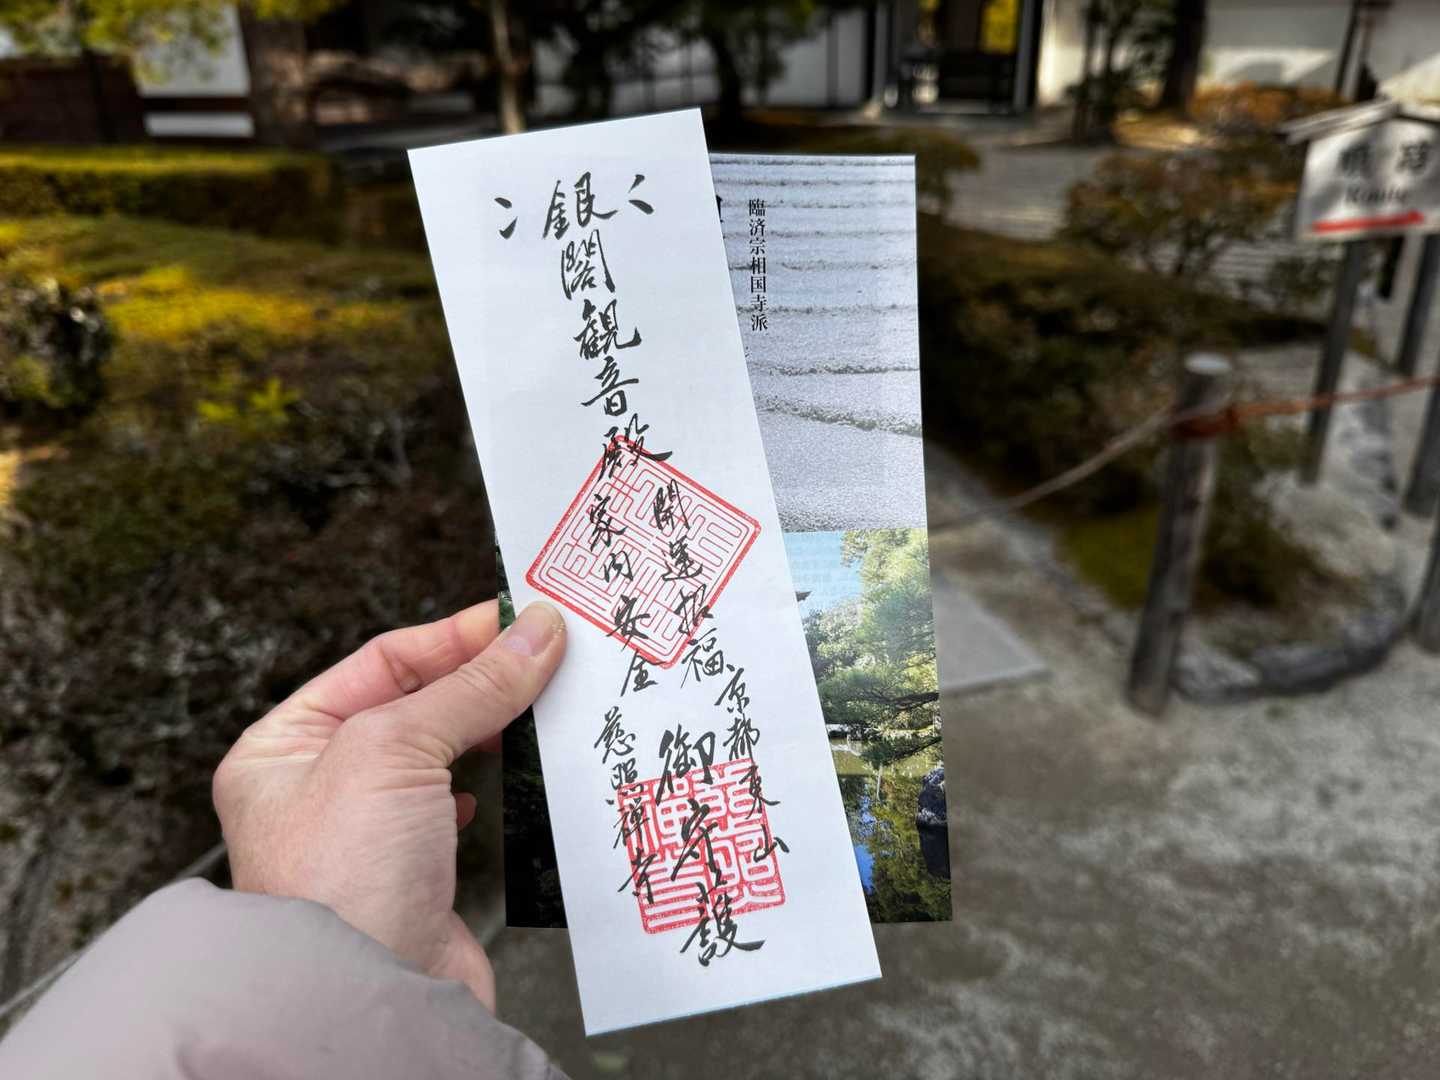 銀閣観音殿
開運招福
家内安全
京都東山
御守護
慈照禅寺
臨済宗相国寺派
順路
Route